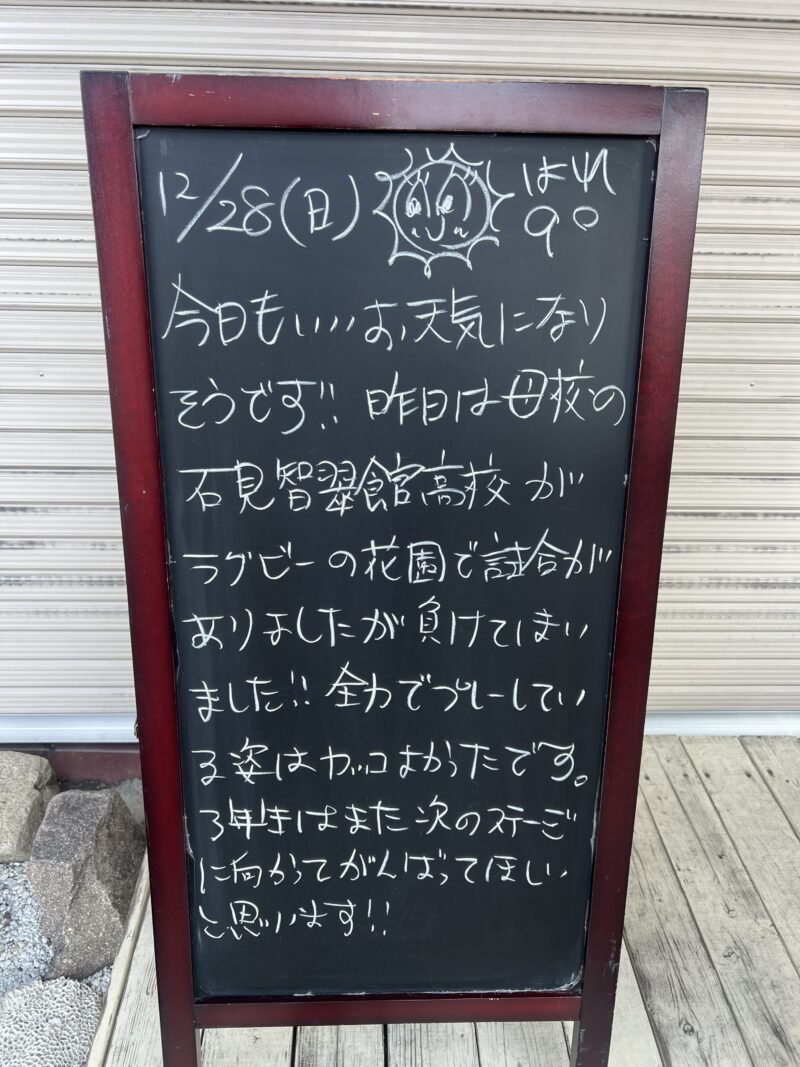 12/28(日) はれ
9°
今日もいいお天気になり
そうです!! 昨日は母校の
石見智翠館高校が
ラグビーの花園で試合が
ありましたが負けてしまい
ました!! 全力でプレーしてい
る姿はカッコよかったです。
3年生はまた次のステージ
に向かってがんばってほしい
と思います!!